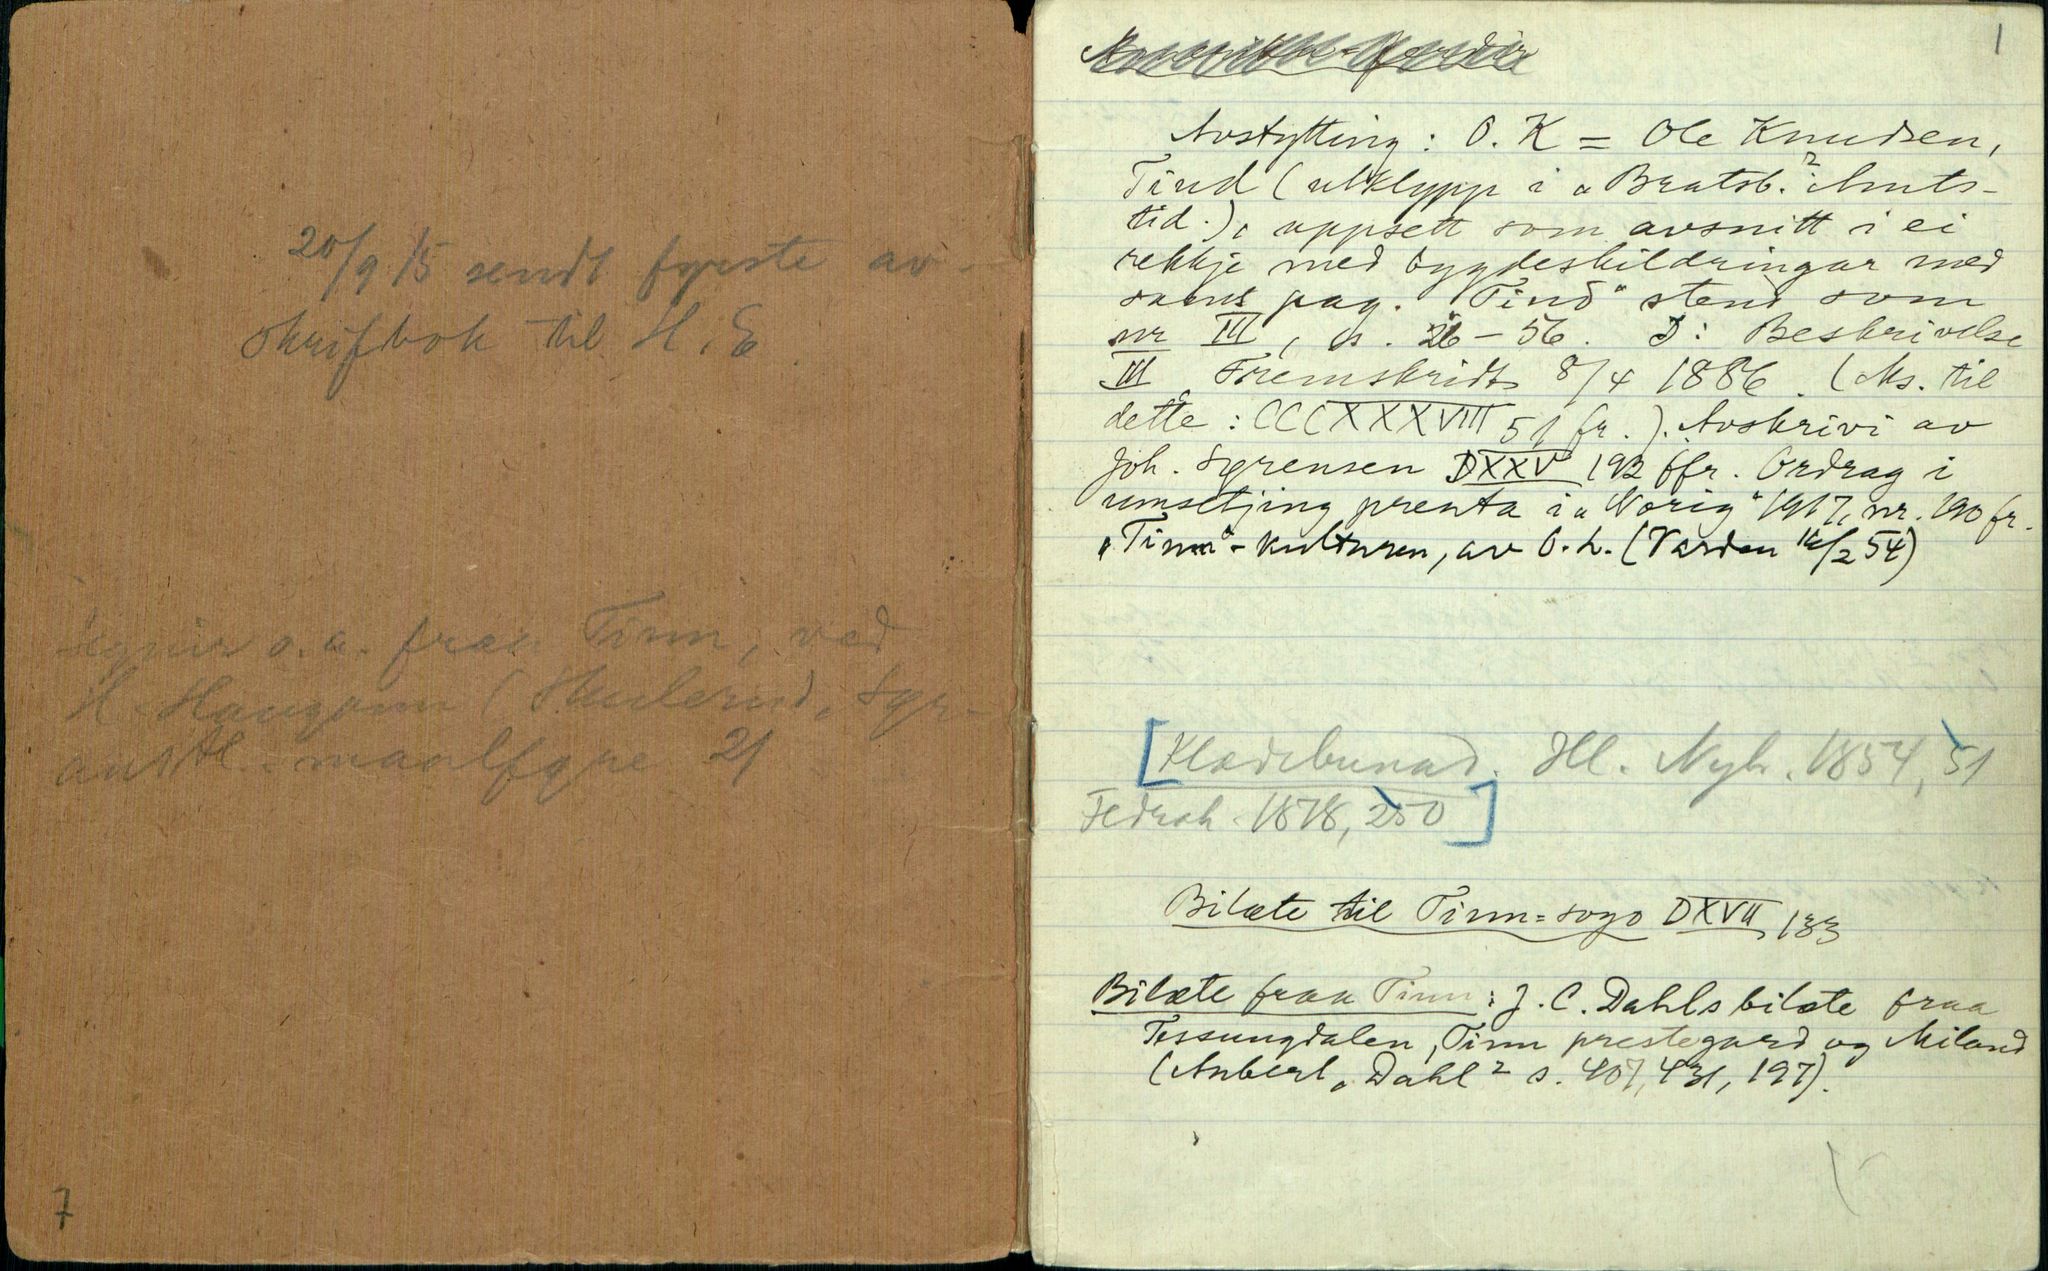 20/9 15 sendt fyrste av-
skrifbok til H. E.
Segnir o.a. fraa Tinn, ved
H. Haugann (Skulerud, Syr-
anstl. maalføre 21
7
1
Avstytting: O. K = Ole Knudsen,
Tind (utklypp i "Bratsb. Amts-
tid."), uppsett som avsnitt i ei
rekkje med bygdeskildringar med
sams pag. "Tind" stend som
nr III, s. 26-56. ɔ: Beskrivelse
III Fremskridt 8/4 1886. (Ms. til
dette: CCCXXXVIII 51 fr.). Avskrivi av
Joh. Sørensen DXXV 192 ffr. Ordrag i
umsetjing prenta i "Norig" 1917, nr. 190 fr.
"Tinn"-kulturen, av O. L. (Varden 16/2 54)
[Klædebunad. Ill. Nyh. 1854, 51
Fedrah. 1878, 250]
Bilæte til Tinn-sogo DXVII 133
Bilæte fraa Tinn: J. C. Dahls bilæte fraa
Tessungdalen, Tinn prestegard og Miland
(Aubert, Dahl² s. 407, 431, 197).